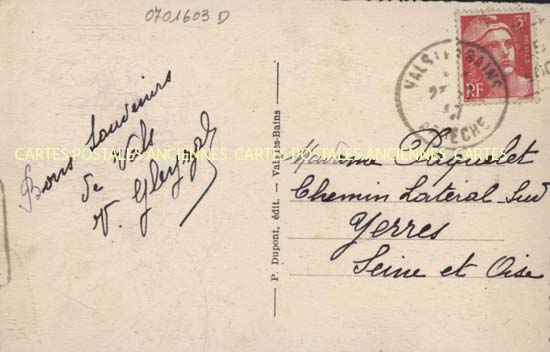 0701603 D
Bons Souvenirs
de Vals
P. Dupont, édit. - Vals-les-Bains
3F
POSTES
RF
VALS LES BAINS
ARDÈCHE
Madame
Chemin Lateral Sud
Yerres
Seine et Oise
CARTES POSTALES ANCIENNES .COM
CARTES POSTALES ANCIENNES .COM